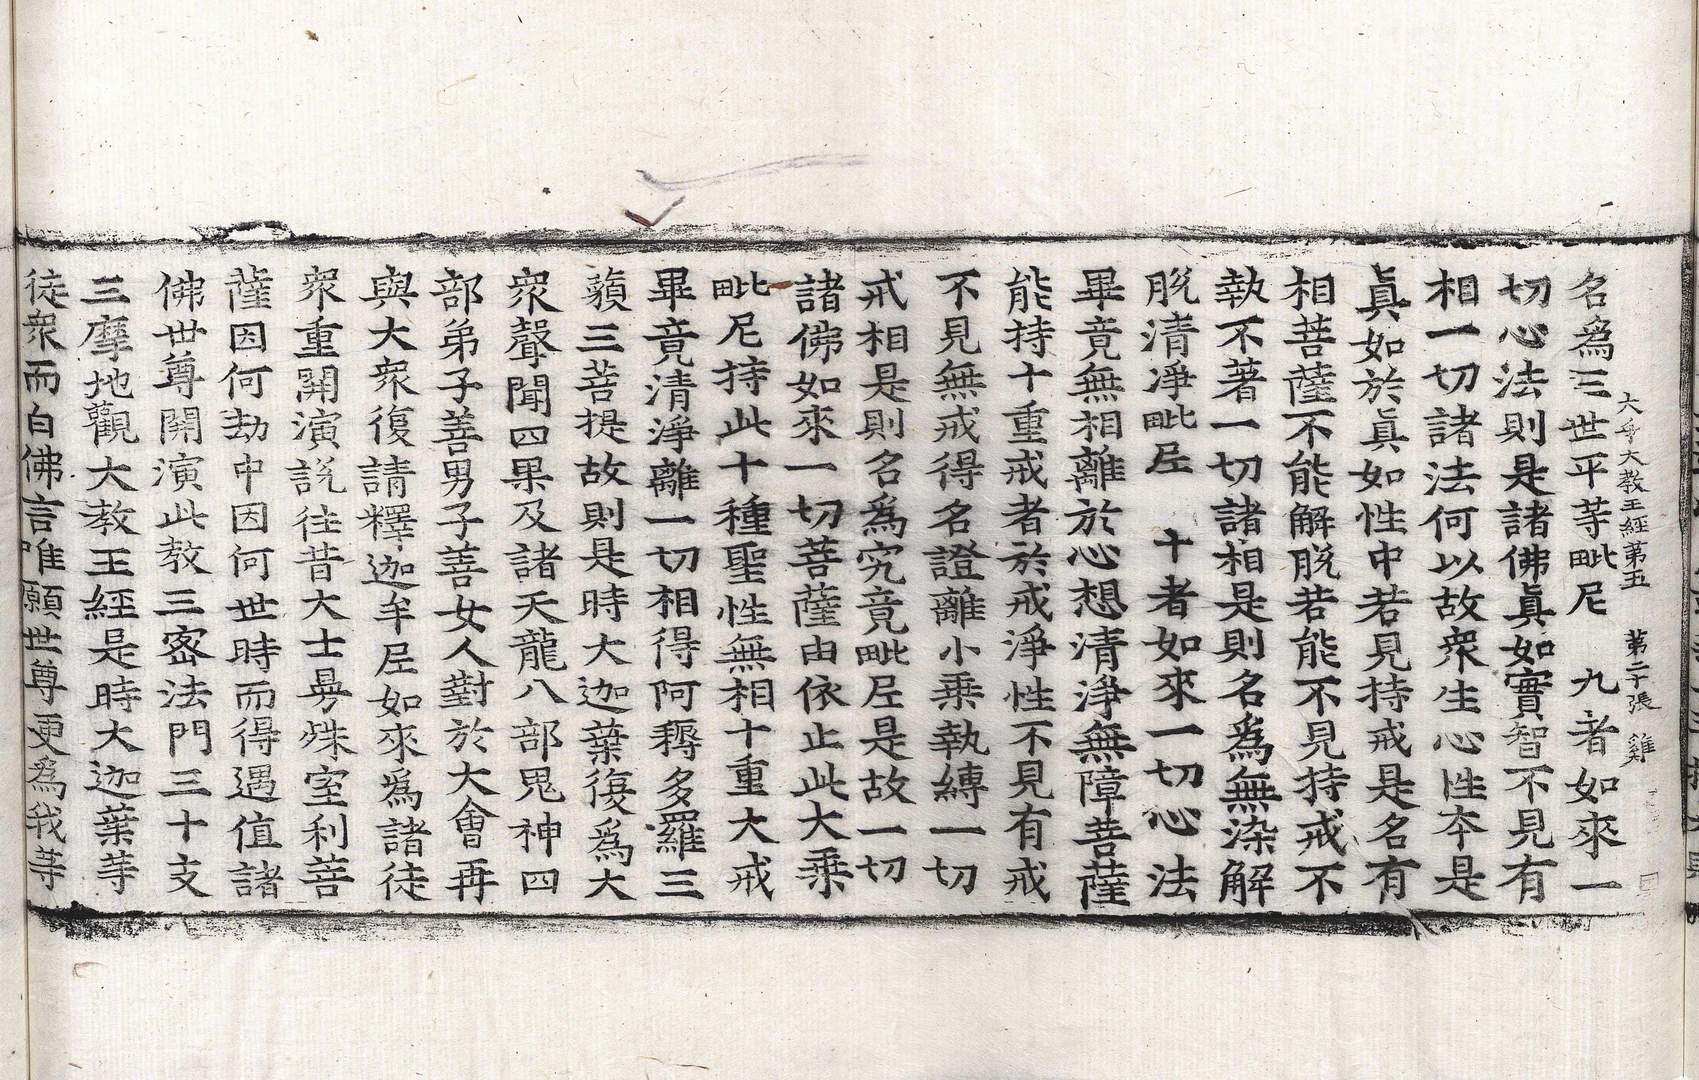 大乎大教王經第五 第二十張 雞
名爲三世平等毗尼 九者如來一
切心法則是諸佛眞如實智不見有
相一切諸法何以故衆生心性本是
眞如於眞如性中若見持戒是名有
相菩薩不能解脫若能不見持戒不
執不著一切諸相是則名爲無染解
脫清淨毗尼 十者如來一切心法
畢竟無相離於心想清淨無障菩薩
能持十重戒者於戒淨性不見有戒
不見無戒得名證離小乘執縛一切
戒相是則名爲究竟毗尼是故一切
諸佛如來一切菩薩由依止此大乘
毗尼持此十種聖性無相十重大戒
畢竟清淨離一切相得阿耨多羅三
藐三菩提故則是時大迦葉復爲大
衆聲聞四果及諸天龍八部鬼神四
部弟子善男子善女人對於大會再
與大衆復請釋迦牟尼如來爲諸徒
衆重開演說往昔大士曼殊室利菩
薩因何劫中因何世時而得遇值諸
佛世尊開演此教三密法門三十支
三摩地觀大教王經是時大迦葉等
徒衆而白佛言唯願世尊更爲我等